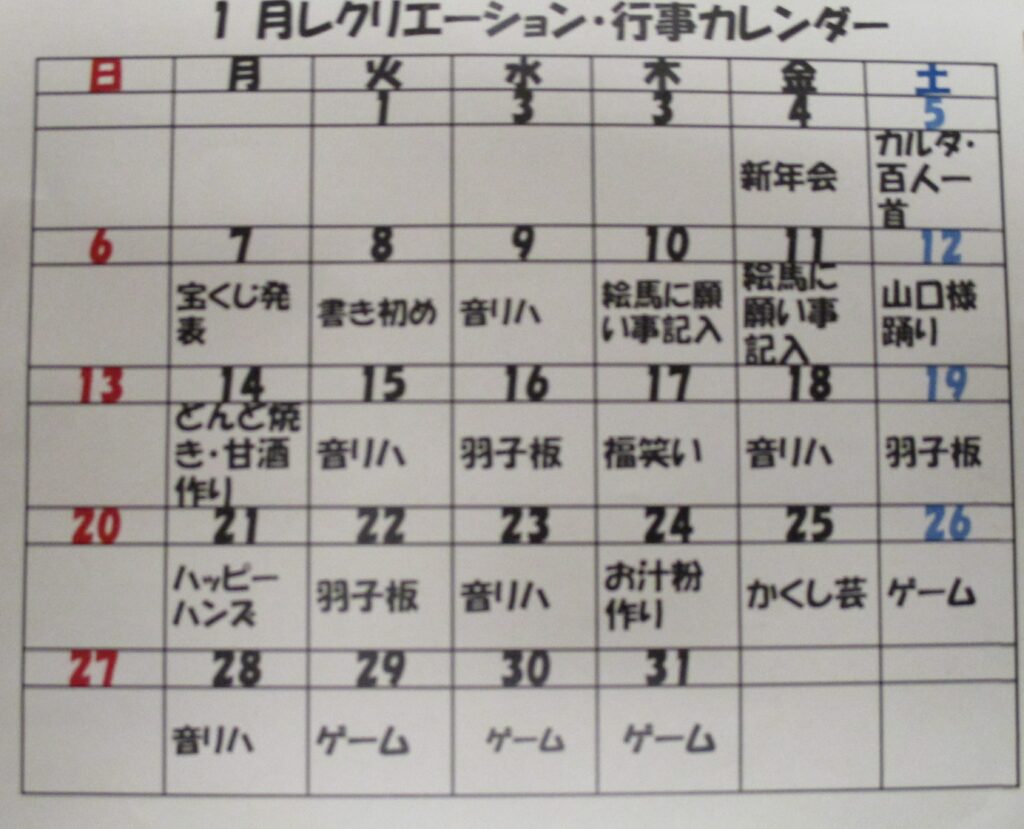 1月レクリエーション・行事カレンダー
日 月 火 水 木 金 土
1 3 3 4 5
新年会 カルタ・
百人一
首
6 7 8 9 10 11 12
宝くじ発
表
書き初め
音リハ
絵馬に願
い事記入
絵馬に
願い事
記入
山口様
踊り
13 14 15 16 17 18 19
どんど焼
き・甘酒
作り
音リハ
羽子板
福笑い
音リハ
羽子板
20 21 22 23 24 25 26
ハッピー
ハンズ
羽子板
音リハ
お汁粉
作り
かくし芸
ゲーム
27 28 29 30 31
音リハ
ゲーム
ゲーム
ゲーム